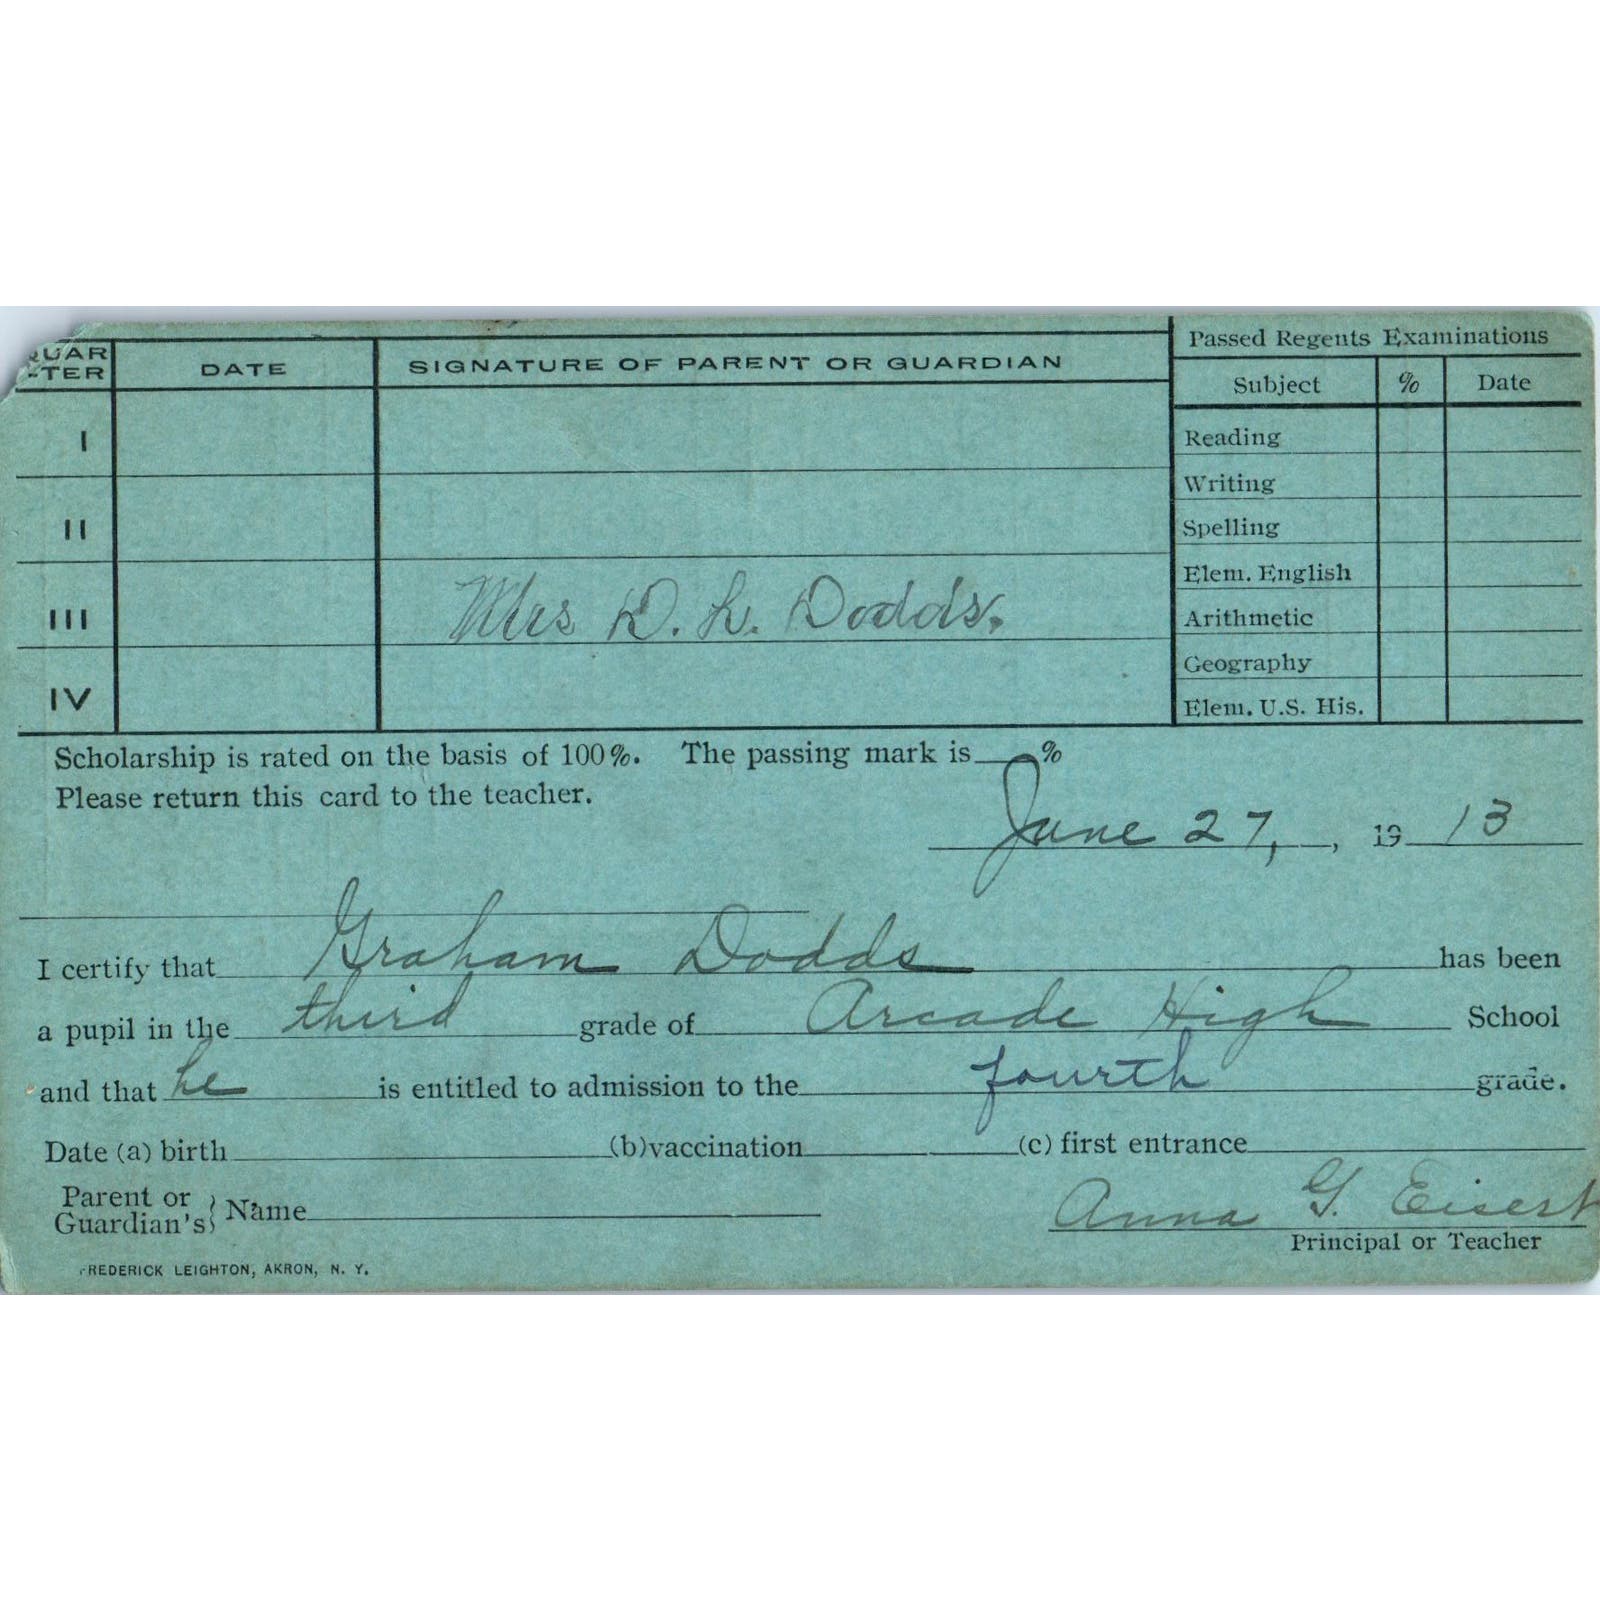 QUAR
-TER DATE SIGNATURE OF PARENT OR GUARDIAN
I
II
III Mrs D. L. Dodds.
IV
Passed Regents Examinations
Subject % Date
Reading
Writing
Spelling
Elem. English
Arithmetic
Geography
Elem. U.S. His.
Scholarship is rated on the basis of 100%. The passing mark is %
Please return this card to the teacher.
June 27, , 1913
I certify that Graham Dodds has been
a pupil in the third grade of Arcade High School
and that he is entitled to admission to the fourth grade.
Date (a) birth (b) vaccination (c) first entrance
Parent or
Guardian's} Name
Anna G. Eisert
Principal or Teacher
FREDERICK LEIGHTON, AKRON, N. Y.